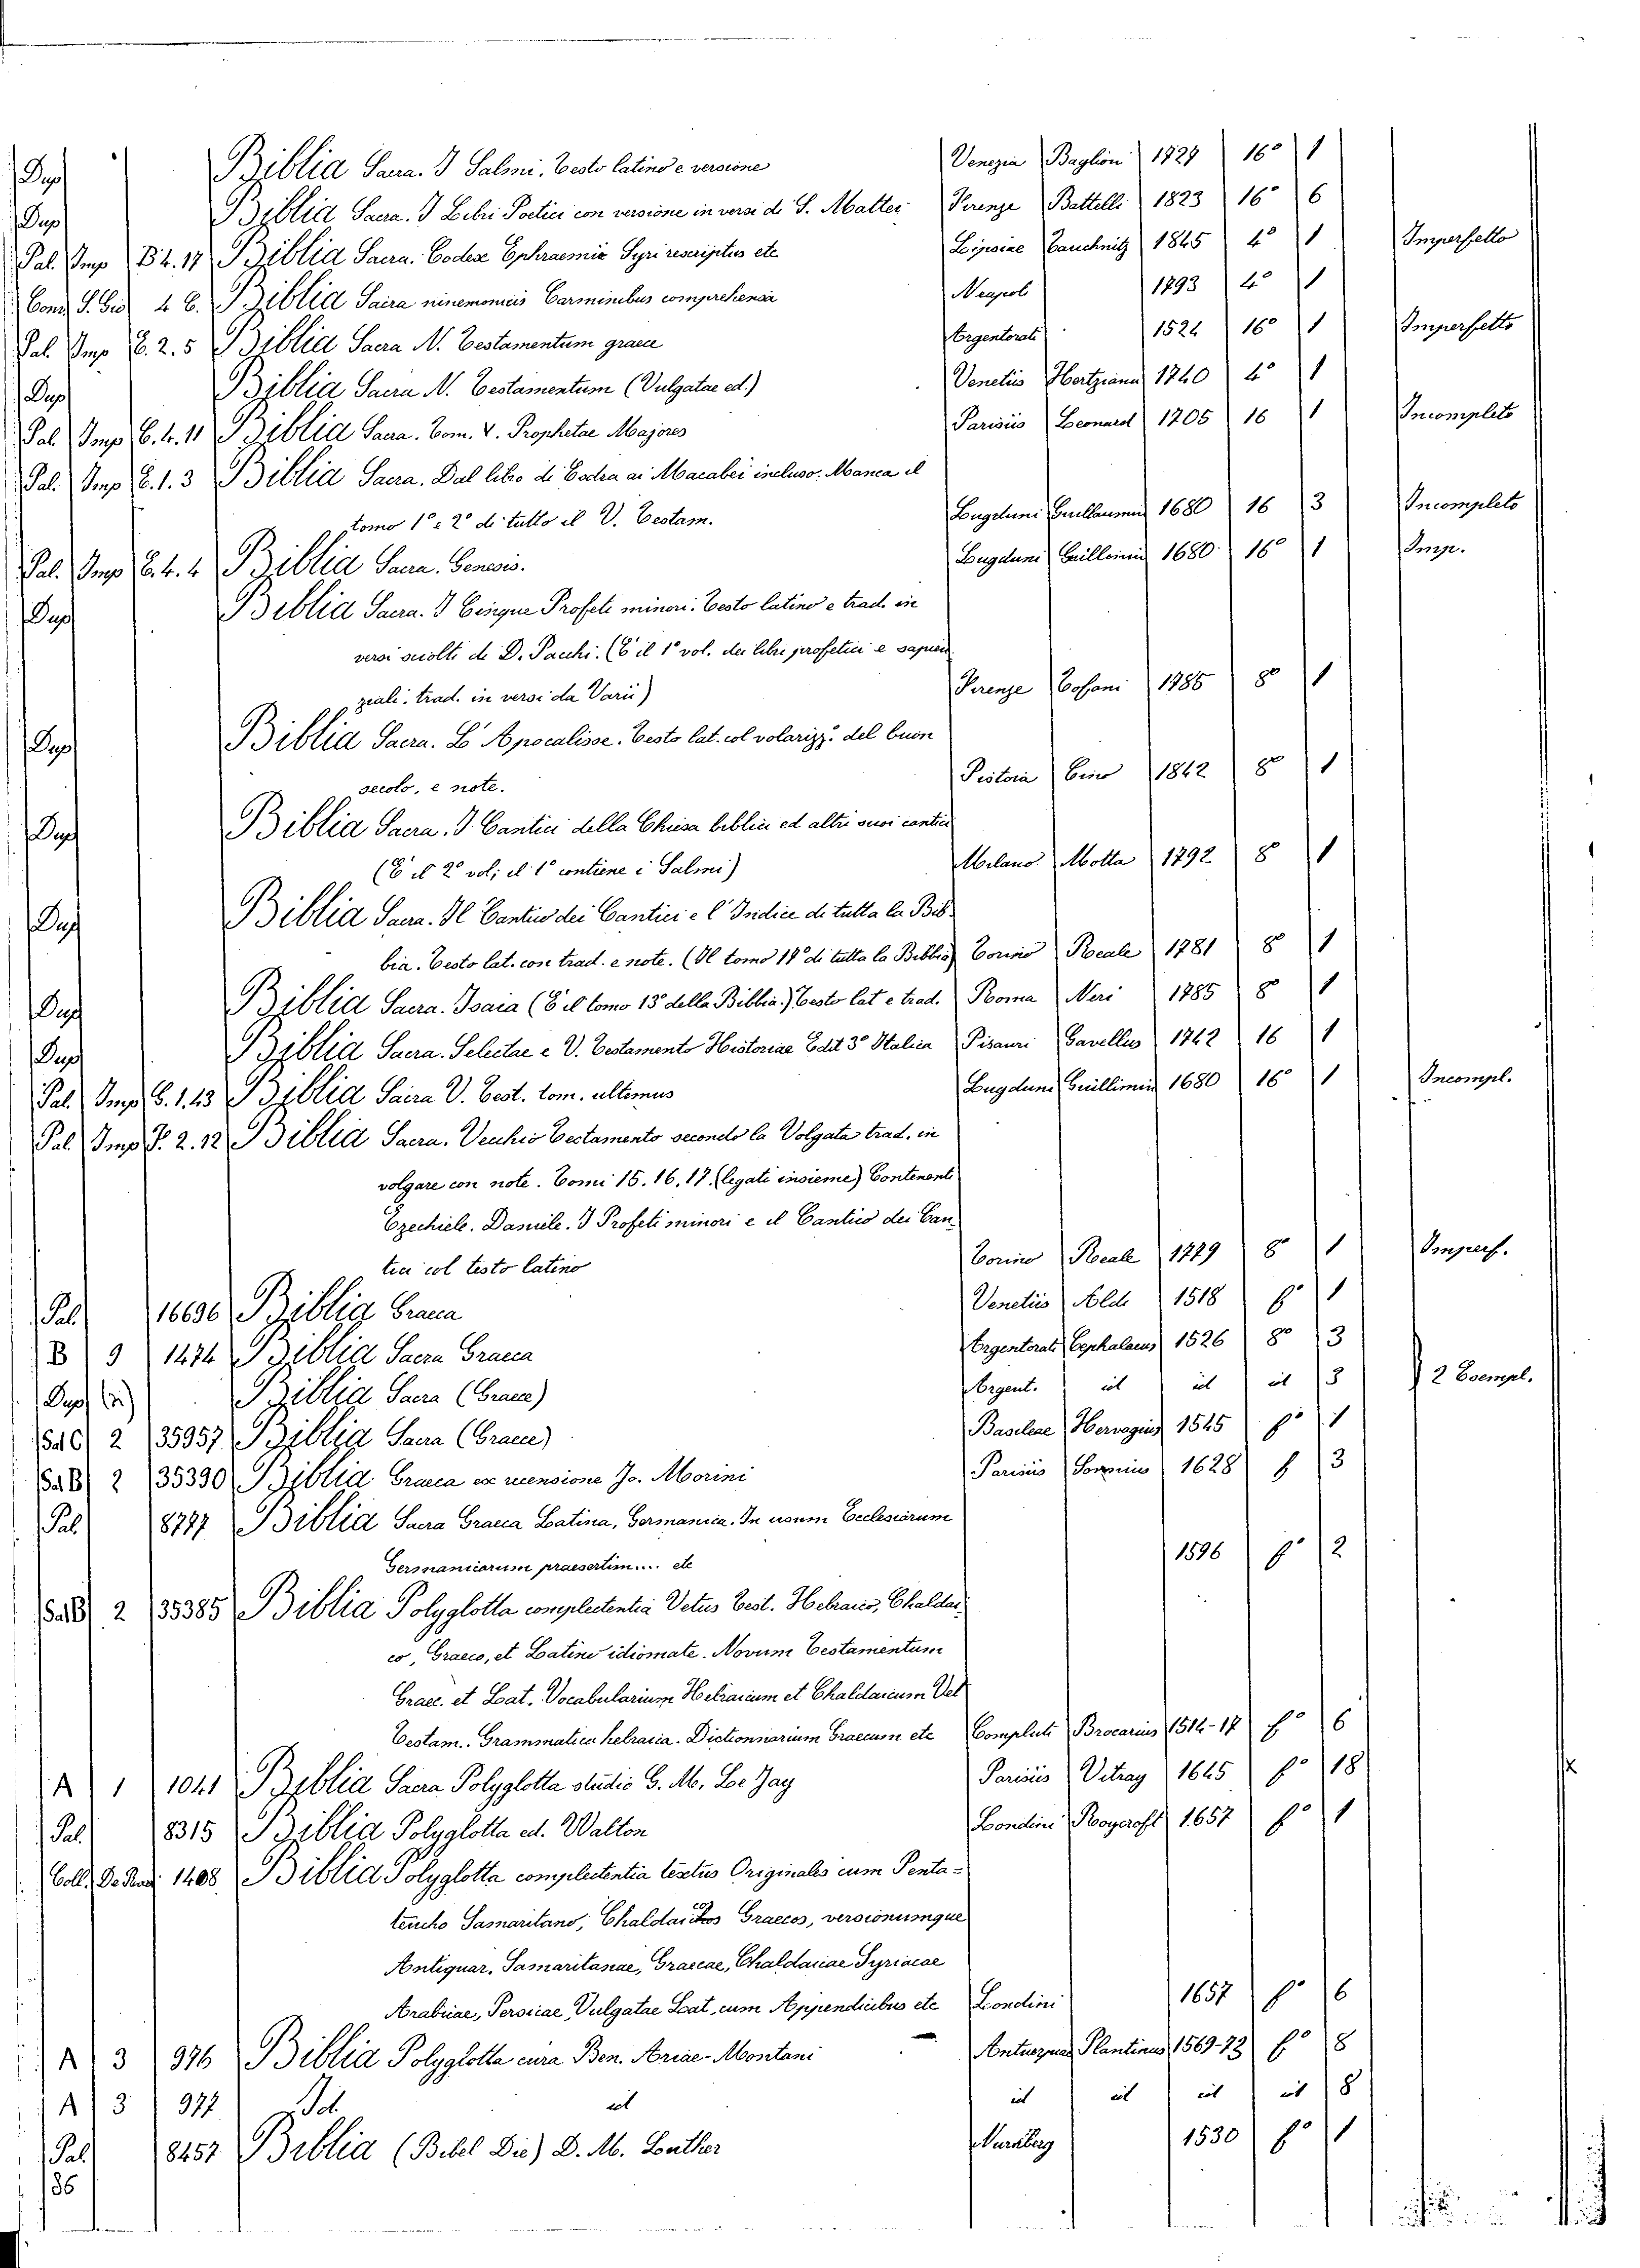 Dup Biblia Sacra. I Salmi. Testo latino e versione Venezia Baglion 16° 1
Dup Biblia Sacra. I Libri Poetici con versione in versi di S. Mattei Firenze Battelli 1823 16° 6
Pal. Imp B 4. 17 Biblia Sacra. Codex Ephraemi Syri rescriptus etc Lipsiae Tauchnitz 1845 4° 1 Imperfetto
4 Biblia Sacra Carminibus comprehensa Neapol 1793 4° 1
Pal. Imp 2. 5 Biblia Sacra N. Testamentum graece Argentorati 1524 16° 1 Imperfetto
Dup Biblia Sacra N. Testamentum (Vulgatae ed.) Venetiis Hertziana 1740 4° 1
Pal. Imp 4. 11 Biblia Sacra. Tom. V. Prophetae Majores Parisiis Leonard 1705 16 1 Incompleto
Pal. Imp 1. 3 Biblia Sacra. Dal libro di Esdra ai Macabei incluso. Manca il
tomo 1° e 2° di tutto il V. Testam. Lugduni 1680 16 3 Incompleto
Pal. Imp 4. 4 Biblia Sacra. Genesis. Lugduni 1680 16° 1 Imp.
Dup Biblia Sacra. I Cinque Profeti minori. Testo latino e trad. in
versi sciolti di D. Pacchi. (È il 1° vol. dei libri profetici e sapien
ziali, trad. in versi da Varii) Firenze 1785 8° 1
Dup Biblia Sacra. L'Apocalisse. Testo lat. col volarizz.° del buon
secolo, e note. Pistoia Cino 1842 8° 1
Dup Biblia Sacra. I Cantici della Chiesa biblici ed altri suoi cantici
(È il 2° vol; il 1° contiene i Salmi) Milano Motta 1792 8 1
Dup Biblia Sacra. Il Cantico dei Cantici e l'Indice di tutta la Bib
bia. Testo lat. con trad. e note. (Il tomo 17° di tutta la Bibbia) Torino Reale 1781 8° 1
Dup Biblia Sacra. Isaia (È il tomo 13° della Bibbia.) Testo lat e trad. Roma Neri 1785 8° 1
Dup Biblia Sacra. Selectae e V. Testamento Historiae Edit 3° Italica Pisauri Gavellus 1742 16 1
Pal. Imp 1. 43 Biblia Sacra V. Test. tom. ultimus Lugduni Guillimin 1680 16° 1 Incompl.
Pal. Imp 2. 12 Biblia Sacra. Vecchio Testamento secondo la Volgata trad. in
volgare con note. Tomi 15. 16. 17. (legati insieme) Contenenti
Ezechiele. Daniele. I Profeti minori e il Cantico dei Can-
tici col testo latino Torino Reale 1779 8° 1 Imperf.
Pal. 16696 Biblia Graeca Venetiis Aldi 1518 f° 1
B 9 1474 Biblia Sacra Graeca Argentorati Cephalaeus 1526 8° 3
Dup Biblia Sacra (Graece) Argent. id id id 3 2 Esempl.
Sal C 2 35957 Biblia Sacra (Graece) Basileae Hervagius 1545 f° 1
Sal B 2 35390 Biblia Graeca ex recensione Jo. Morini Parisiis Sonnius 1628 f 3
Pal. 8777 Biblia Sacra Graeca Latina, Germanica. In usum Ecclesiarum
Germanicarum praesertim.... etc 1596 f° 2
Sal B 2 35385 Biblia Polyglotta complectentia Vetus Test. Hebraico, Chaldai
co, Graeco, et Latino idiomate. Novum Testamentum
Graec. et Lat. Vocabularium Hebraicum et Chaldaicum Vet
Testam.. Grammatica hebraica. Dictionnarium Graecum etc Compluti Brocarius 1514-17 f° 6
A 1 1041 Biblia Sacra Polyglotta studio G. M. Le Jay Parisiis Vitray 1645 f° 18
Pal. 8315 Biblia Polyglotta ed. Walton Londini Roycroft 1657 f° 1
Coll. De 1408 Biblia Polyglotta complectentia textus Originales cum Penta-
teucho Samaritano, Chaldaicos Graecos, versionumque
Antiquar. Samaritanae, Graecae, Chaldaicae Syriacae
Arabicae, Persicae, Vulgatae Lat. cum Appendicibus etc Londini 1657 f° 6
A 3 976 Biblia Polyglotta cura Ben. Ariae-Montani Plantinus 1569-73 f° 8
A 3 977 Id. id id id id id 8
Pal. 8457 Biblia (Bibel Die) D. M. Luther Nurnberg 1530 f° 1